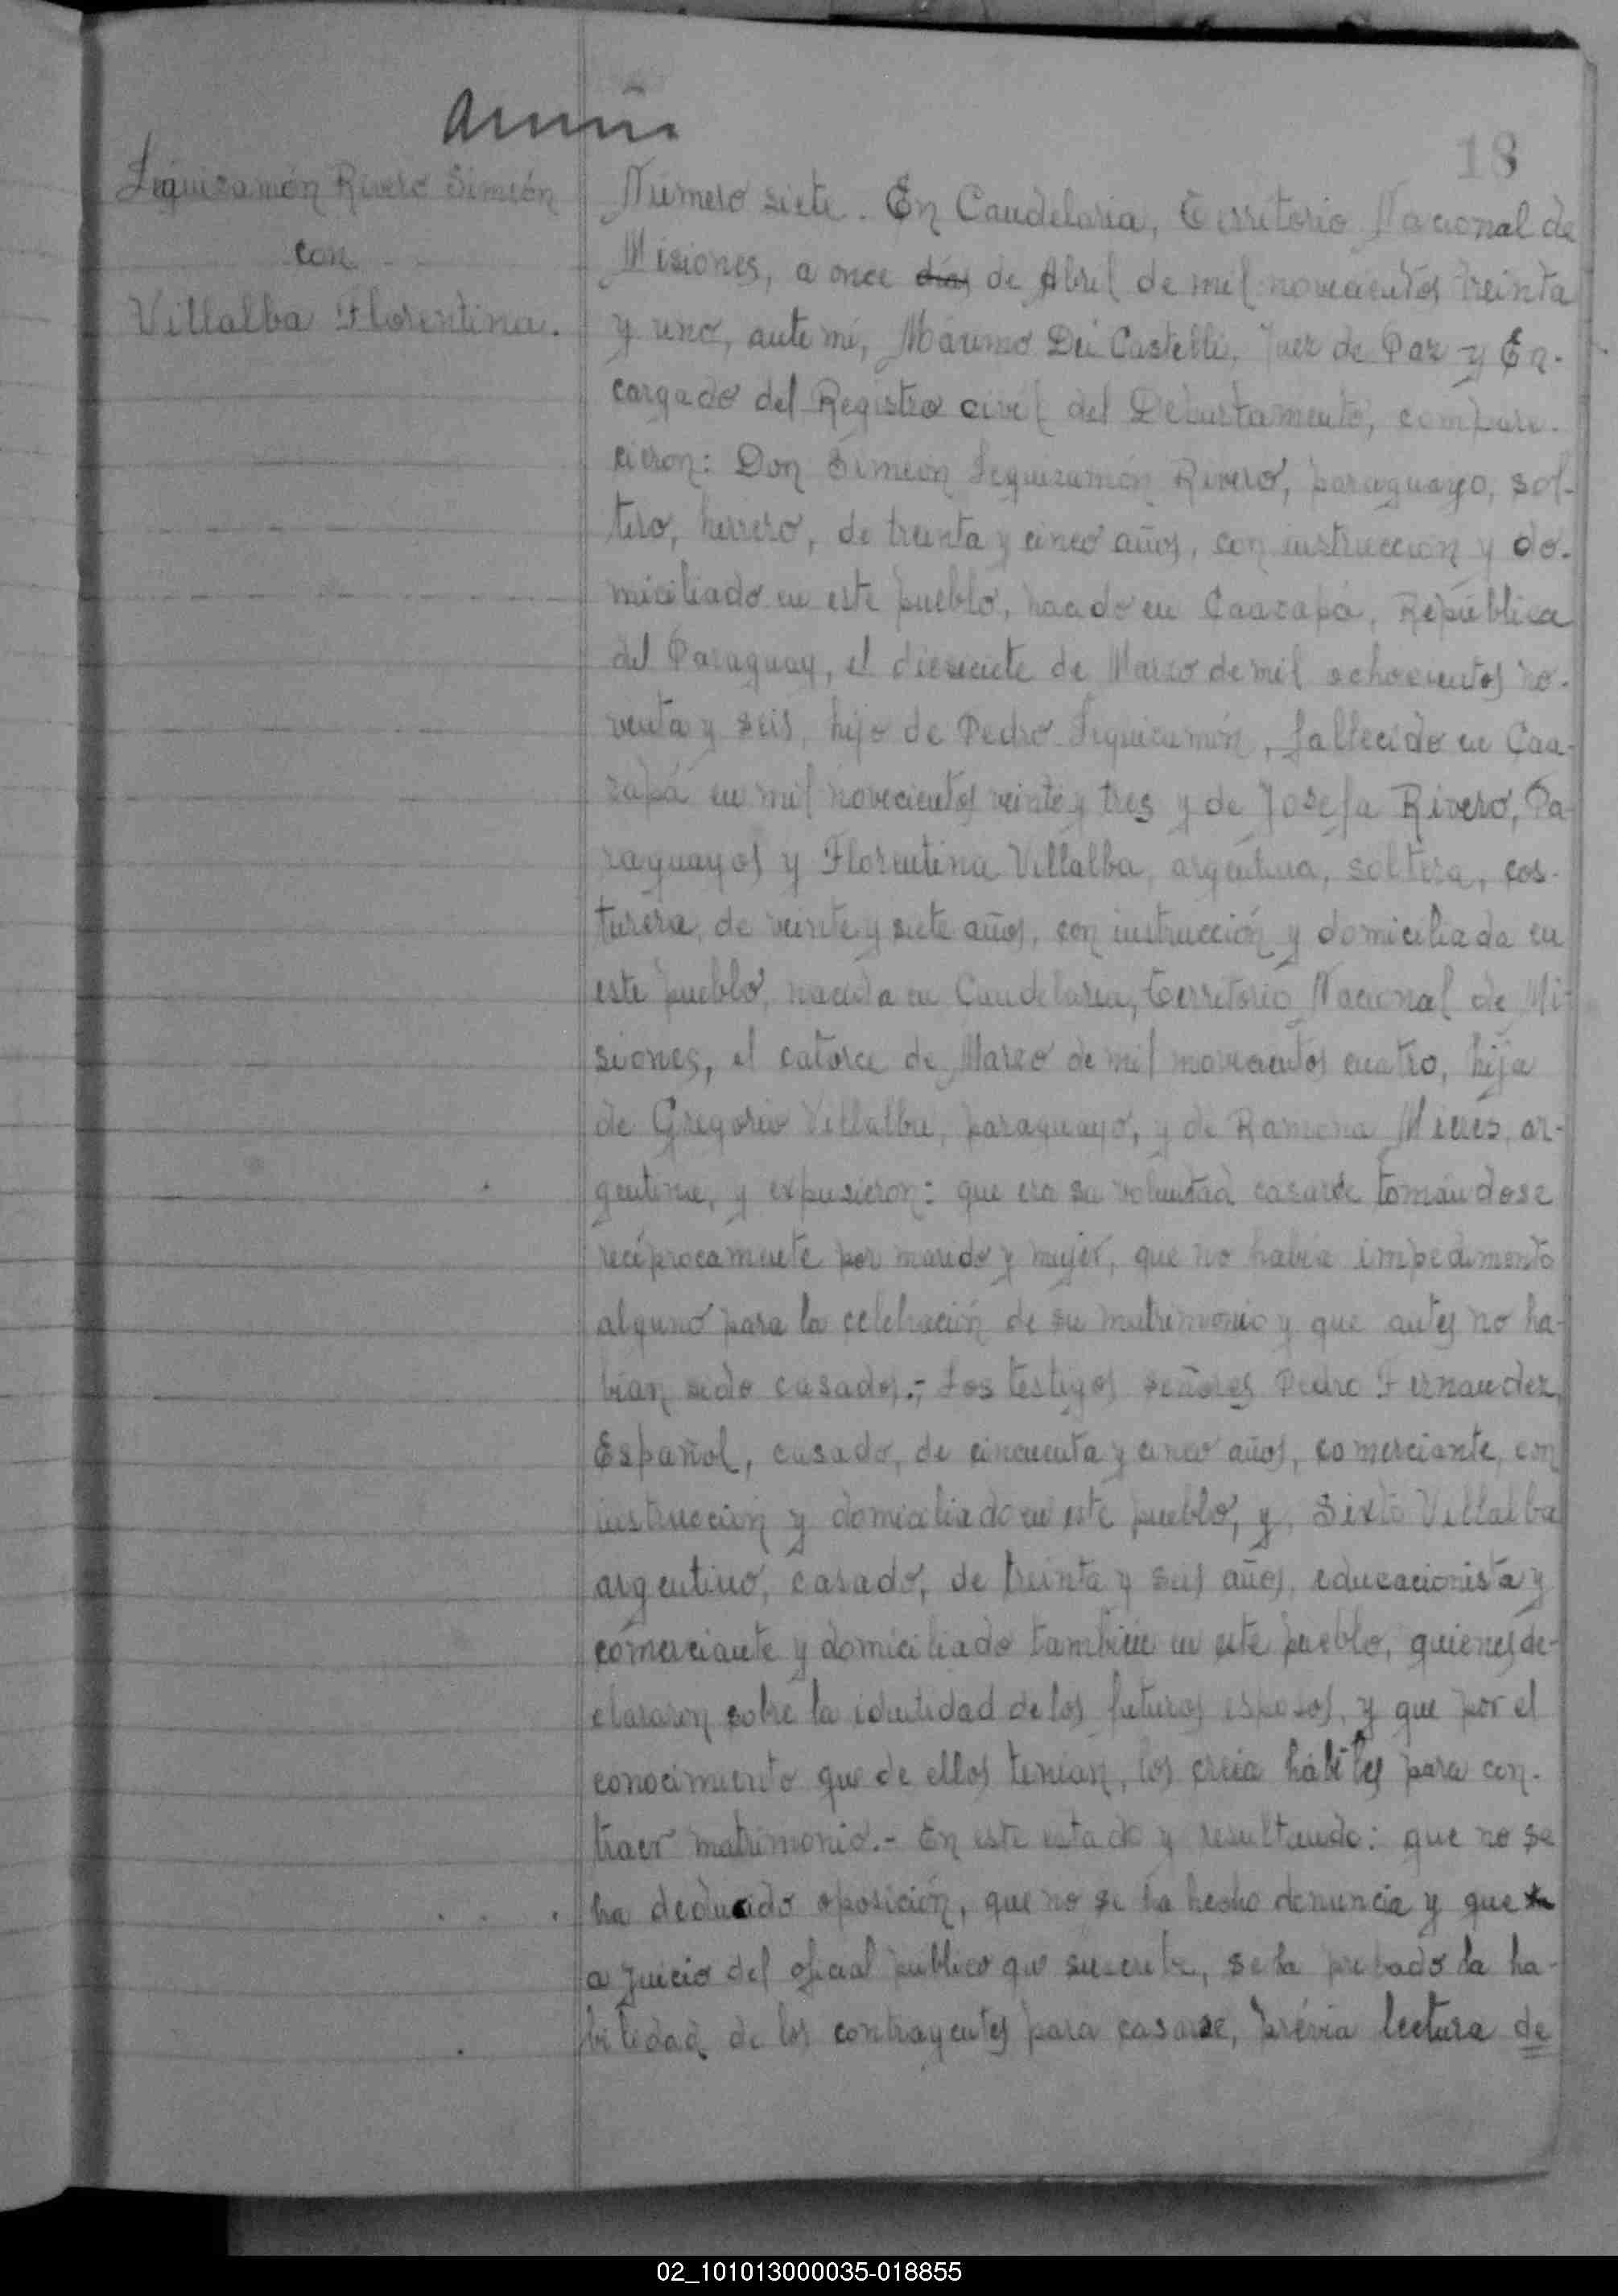 18
Leguizamón Rivero Simeón
con
Villalba Florentina.
Número siete. En Candelaria, Territorio Nacional de
Misiones, a once días de Abril de mil novecientos treinta
y uno, ante mí, Máximo Dei Castelli, Juez de Paz y En-
cargado del Registro civil del Departamento, compare-
cieron: Don Simeon Leguizamón Rivero, paraguayo, sol-
tero, herrero, de treinta y cinco años, con instruccion y do-
miciliado en este pueblo, nacido en Caazapá, República
del Paraguay, el diecisiete de Marzo de mil ochocientos no-
venta y seis, hijo de Pedro Leguizamón, fallecido en Caa-
zapá en mil novecientos veinte y tres y de Josefa Rivero, Pa-
raguayos y Florentina Villalba, argentina, soltera, cos-
turera, de veinte y siete años, con instrucción y domiciliada en
este pueblo, nacida en Candelaria, Territorio Nacional de Mi-
siones, el catorce de Marzo de mil novecientos cuatro, hija
de Gregorio Villalba, paraguayo, y de Ramona ar-
gentina, y expusieron: que era su voluntad casarse tomándose
recíprocamente por marido y mujer, que no había impedimento
alguno para la celebración de su matrimonio y que antes no ha-
bían sido casados.- Los testigos señores Pedro Fernandez,
Español, casado, de cincuenta y cinco años, comerciante, con
instrucción y domiciliado en este pueblo, y, Sixto Villalba
argentino, casado, de treinta y seis años, educacionista y
comerciante y domiciliado tambien en este pueblo, quienes de-
clararon sobre la identidad de los futuros esposos, y que por el
conocimiento que de ellos tenían, los creia hábiles para con-
traer matrimonio.- En este estado y resultando: que no se
ha deducido oposición, que no se ha hecho denuncia y que
a juicio del oficial público que suscribe, se ha probado la ha-
bilidad de los contrayentes para casarse, prévia lectura de
02_101013000035-018855